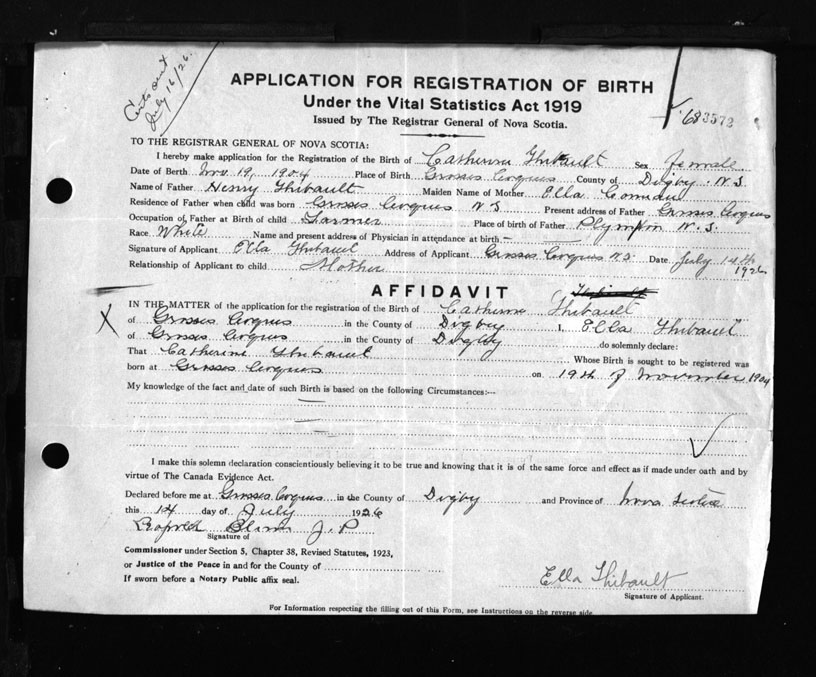 Certs out
July 16/26.
APPLICATION FOR REGISTRATION OF BIRTH
Under the Vital Statistics Act 1919
Issued by The Registrar General of Nova Scotia.
683573
TO THE REGISTRAR GENERAL OF NOVA SCOTIA:
I hereby make application for the Registration of the Birth of Catherine Thibault Sex female
Date of Birth Nov 19, 1904 Place of Birth Grosses Coques County of Digby. N.S
Name of Father Henry Thibault Maiden Name of Mother Ella Comeau
Residence of Father when child was born Grosses Coques N S Present address of Father Grosses Coques
Occupation of Father at Birth of child Farmer Place of birth of Father Plympton N. S.
Race White Name and present address of Physician in attendance at birth —
Signature of Applicant Ella Thibault Address of Applicant Grosses Coques N.S. Date July 14th
1926
Relationship of Applicant to child Mother
AFFIDAVIT
IN THE MATTER of the application for the registration of the Birth of Catherine Thibault
of Grosses Coques in the County of Digby I, Ella Thibault
of Grosses Coques in the County of Digby do solemnly declare:
That Catherine Thibault Whose Birth is sought to be registered was
born at Grosses Coques on 19th of November 1904
My knowledge of the fact and date of such Birth is based on the following Circumstances:—
I make this solemn declaration conscientiously believing it to be true and knowing that it is of the same force and effect as if made under oath and by
virtue of The Canada Evidence Act.
Declared before me at Grosses Coques in the County of Digby and Province of Nova Scotia
this 14 day of July 1926
Leopold J. P
Signature of
Commissioner under Section 5, Chapter 38, Revised Statutes, 1923,
or Justice of the Peace in and for the County of
If sworn before a Notary Public affix seal.
Ella Thibault
Signature of Applicant.
For Information respecting the filling out of this Form, see Instructions on the reverse side